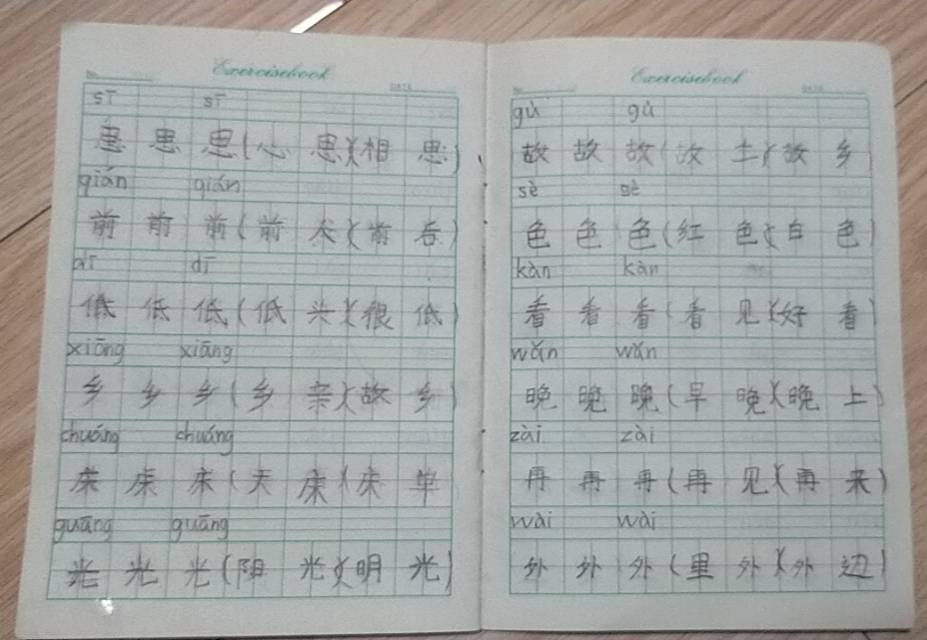 No. Exercisebook DATE
sī sī
思 思 思(心 思)(相 思)
qián qián
前 前 前(前 天)(前 后)
dī dī
低 低 低(低 头)(很 低)
xiāng xiāng
乡 乡 乡(乡 亲)(故 乡)
chuáng chuáng
床 床 床(天 床)(床 单)
guāng guāng
光 光 光(阳 光)(明 光)
No. Exercisebook DATE
gù gù
故 故 故(故 土)(故 乡)
sè sè
色 色 色(红 色)(白 色)
kàn kàn
看 看 看(看 见)(好 看)
wǎn wǎn
晚 晚 晚(早 晚)(晚 上)
zài zài
再 再 再(再 见)(再 来)
wài wài
外 外 外(里 外)(外 边)